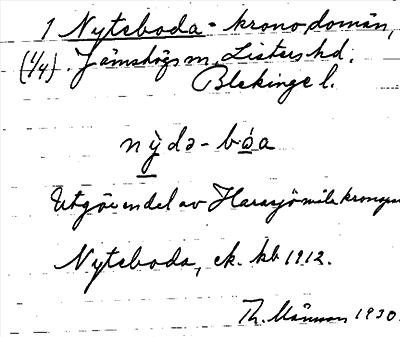 1 Nyteboda - kronodomän,
(1/4). Jämshögs sn, Listers hd.
Blekinge l.
nỳdə-bǻa
Utgör en del av Harasjömåla kronopark
Nyteboda, ek. kb 1912.
Th. Månsson 1930.